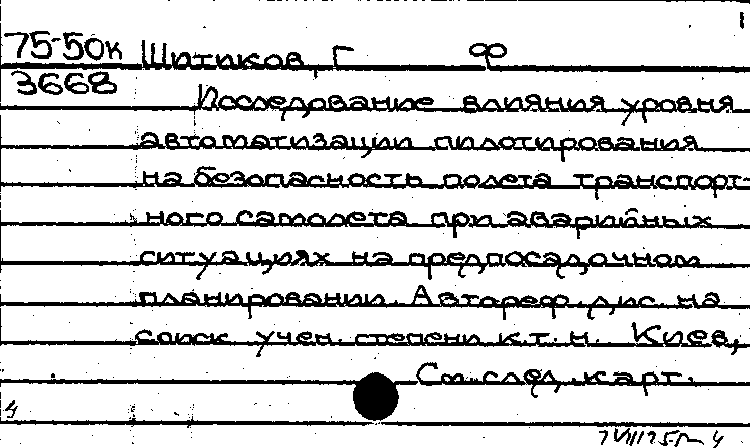 75-50к Шитиков, Г Ф
3668
Исследование влияния уровня
автоматизации пилотирования
на безопасность полета транспорт-
ного самолета при аварийных
ситуациях на предпосадочном
планировании. Автореф. дис. на
соиск учен. степени к.т.н. Киев,
См. след. карт.